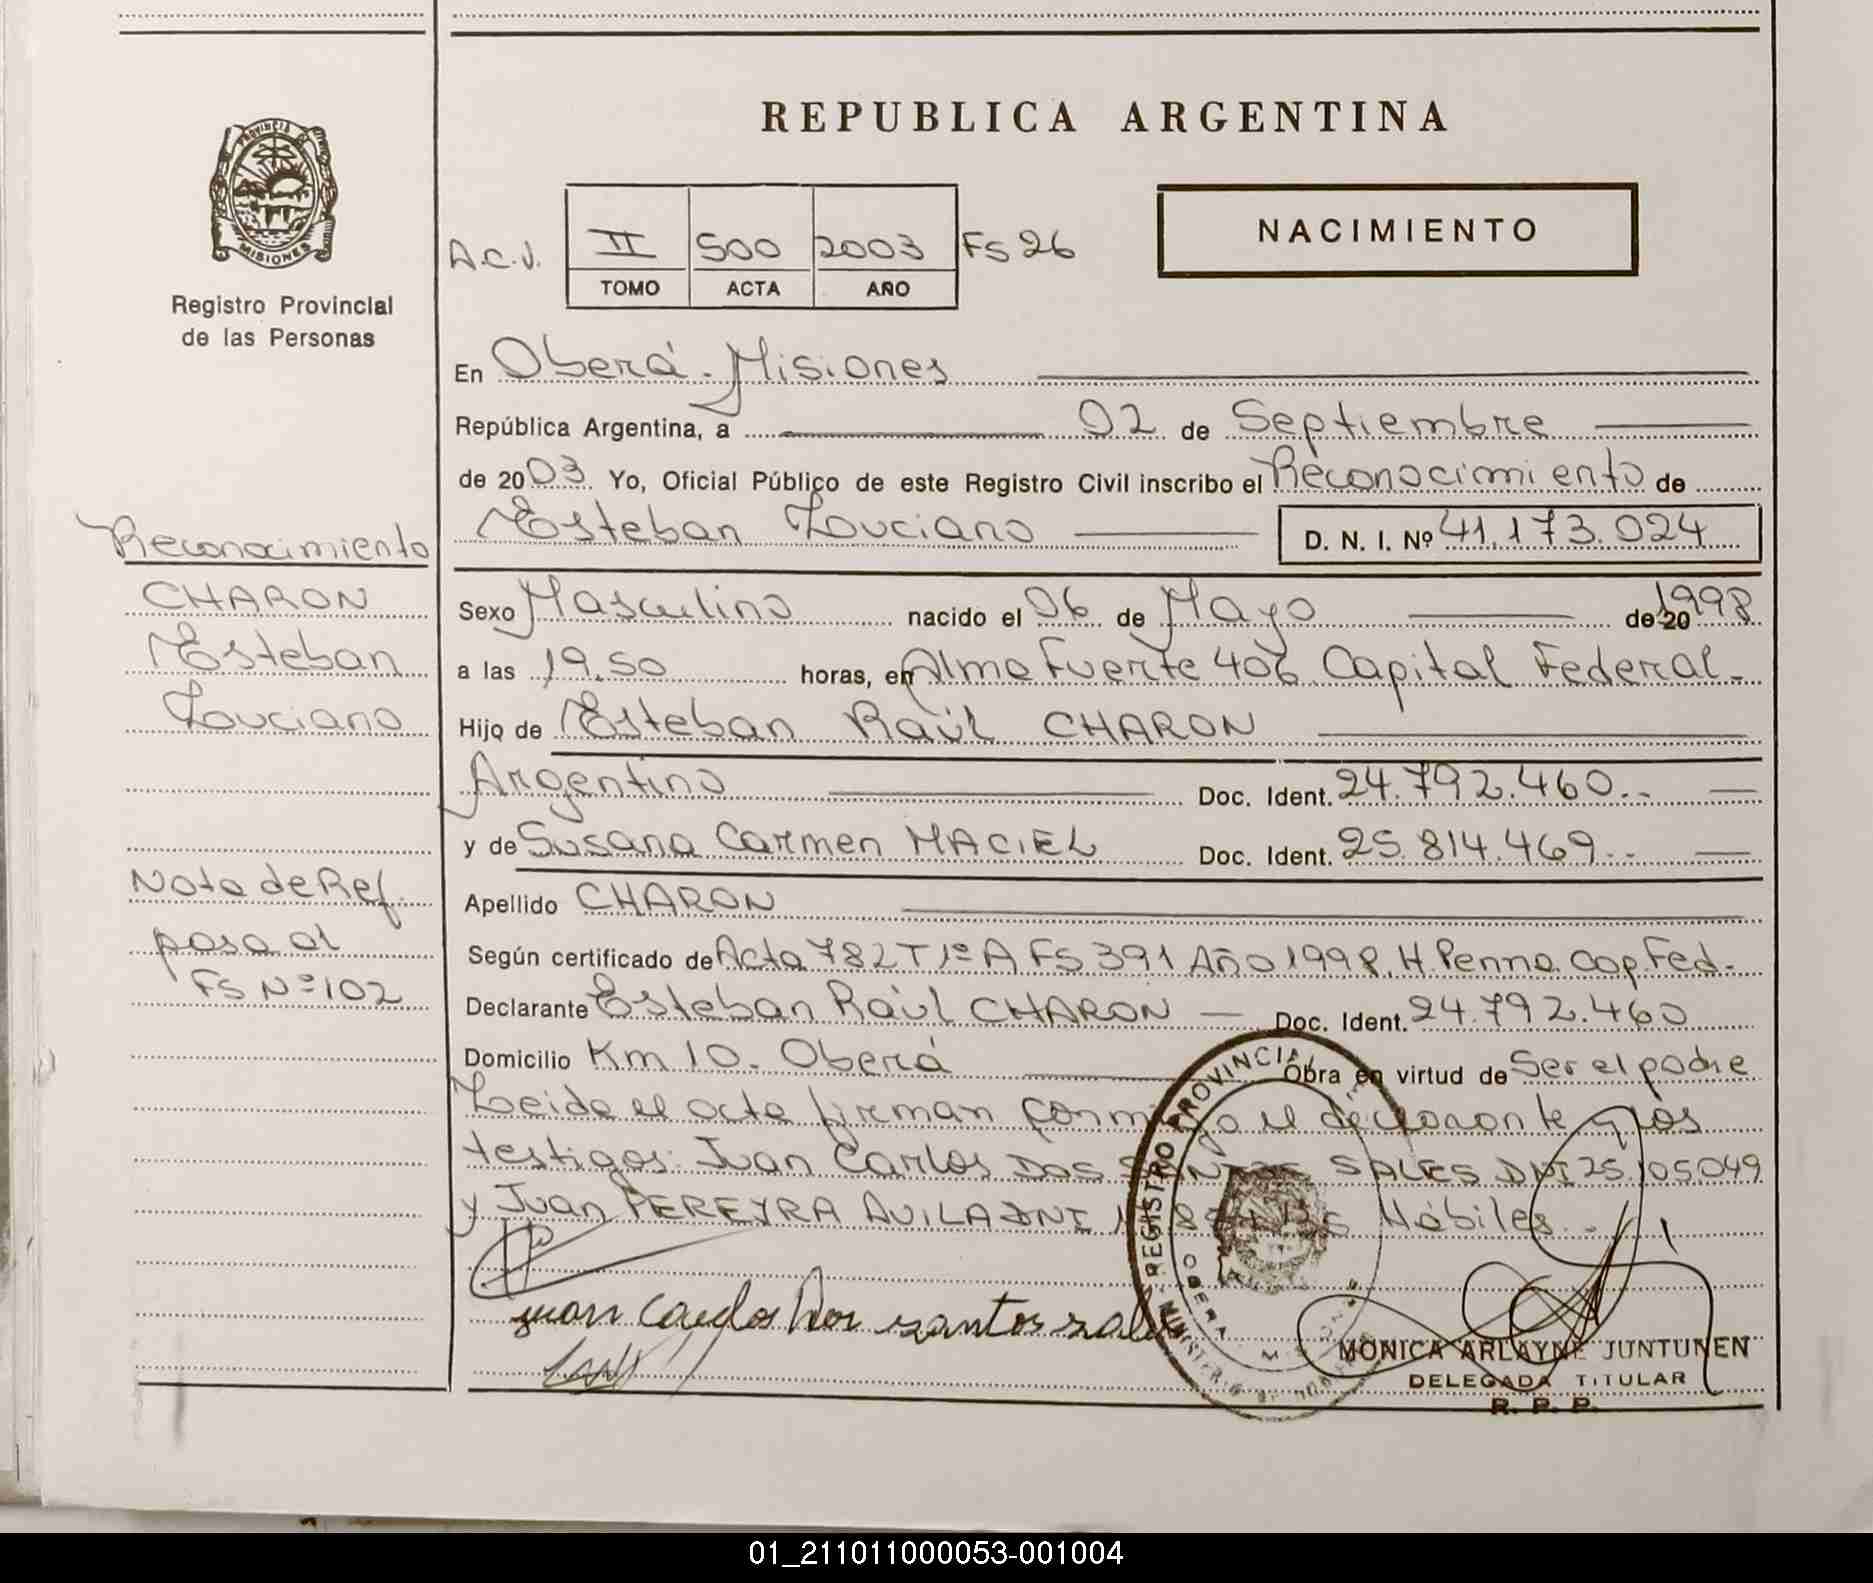 REPUBLICA ARGENTINA
PROVINCIA DE
MISIONES
Registro Provincial
de las Personas
A.C.J. II 500 2003 FS 26
TOMO ACTA AÑO
NACIMIENTO
En Oberá - Misiones
República Argentina, a 02 de Septiembre
de 2003. Yo, Oficial Público de este Registro Civil inscribo el Reconocimiento de
Esteban Louciano D. N. I. Nº 41.173.024
Sexo Masculino nacido el 06 de Mayo de 20 1998
a las 19.50 horas, en Alma Fuerte 406 Capital Federal.
Hijo de Esteban Raúl CHARON
Argentino Doc. Ident. 24.792.460..
y de Susana Carmen MACIEL Doc. Ident. 25.814.469..
Apellido CHARON
Según certificado de Acta 782 T 1º A FS 391 Año 1998. H. Penna. Cap. Fed.
Declarante Esteban Raúl CHARON Doc. Ident. 24.792.460
Domicilio Km 10. Oberá Obra en virtud de Ser el padre
Leida el acta firman conmigo el declarante y los
testigos: Juan Carlos DOS SANTOS SALES DNI 25.105.049
y Juan PEREYRA AVILA DNI Hábiles.
juan carlos dos santos sales
Reconocimiento
CHARON
Esteban
Louciano
Nota de Ref.
pasa al
FS Nº 102
REGISTRO PROVINCIAL
OBERA
MONICA ARLAYNE JUNTUNEN
DELEGADA TITULAR
R. P. P.
01_211011000053-001004